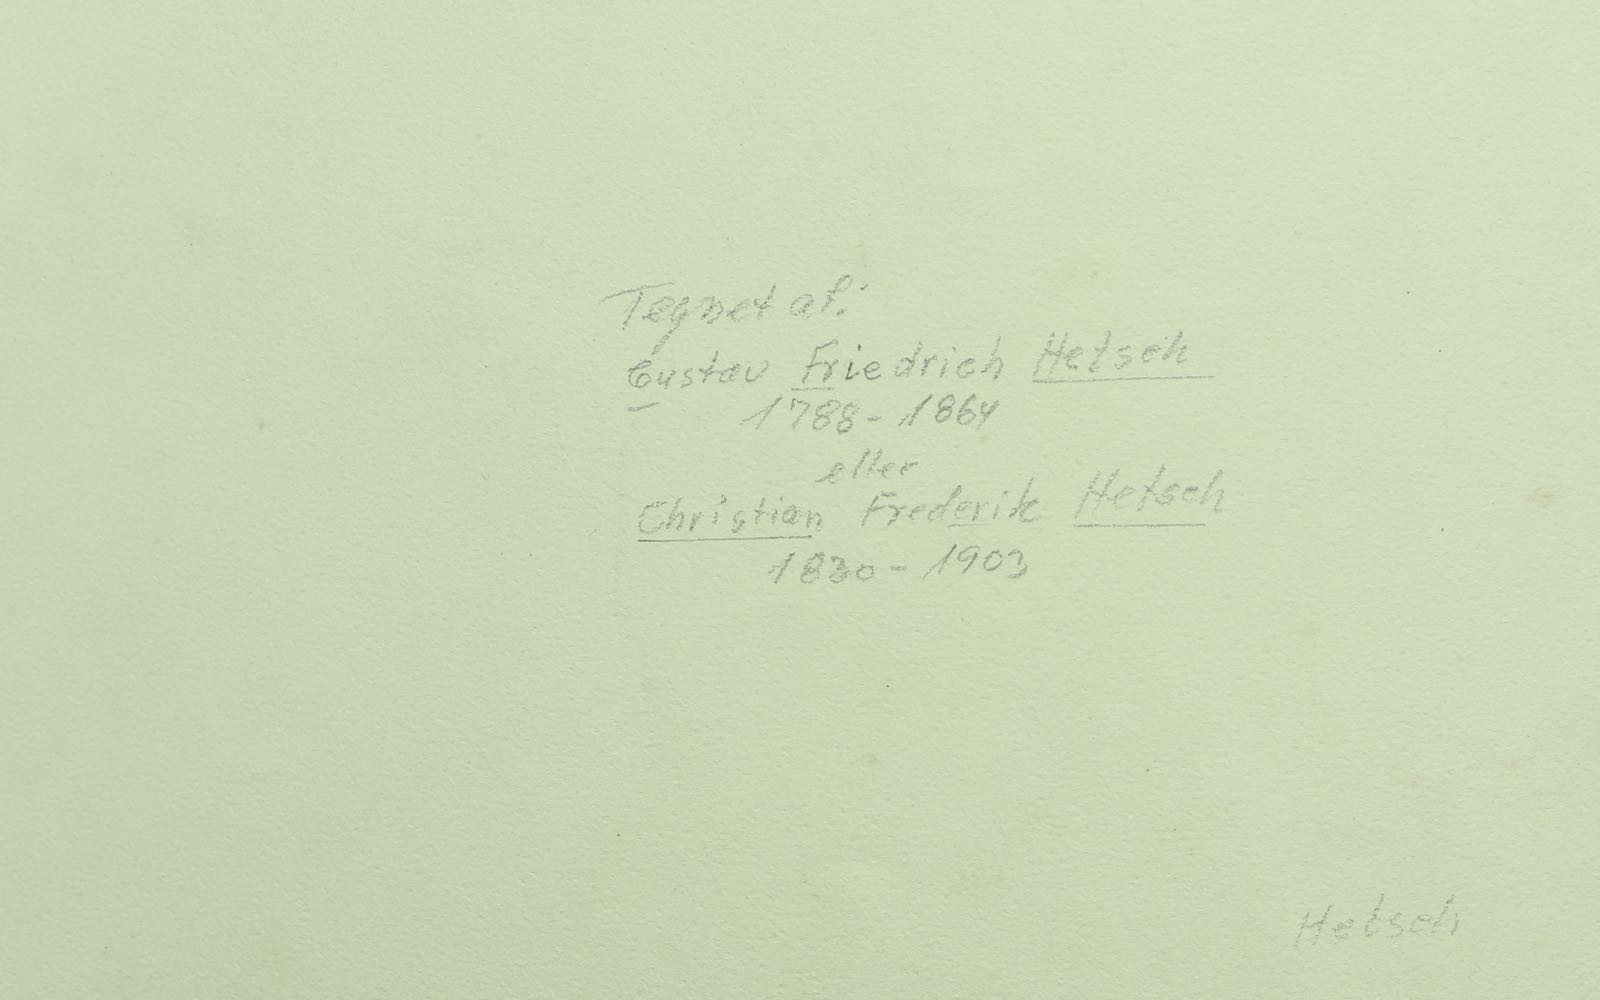 Tegnet af:
Gustav Friedrich Hetsch
1788 - 1864
eller
Christian Frederik Hetsch
1830 - 1903
Hetsch